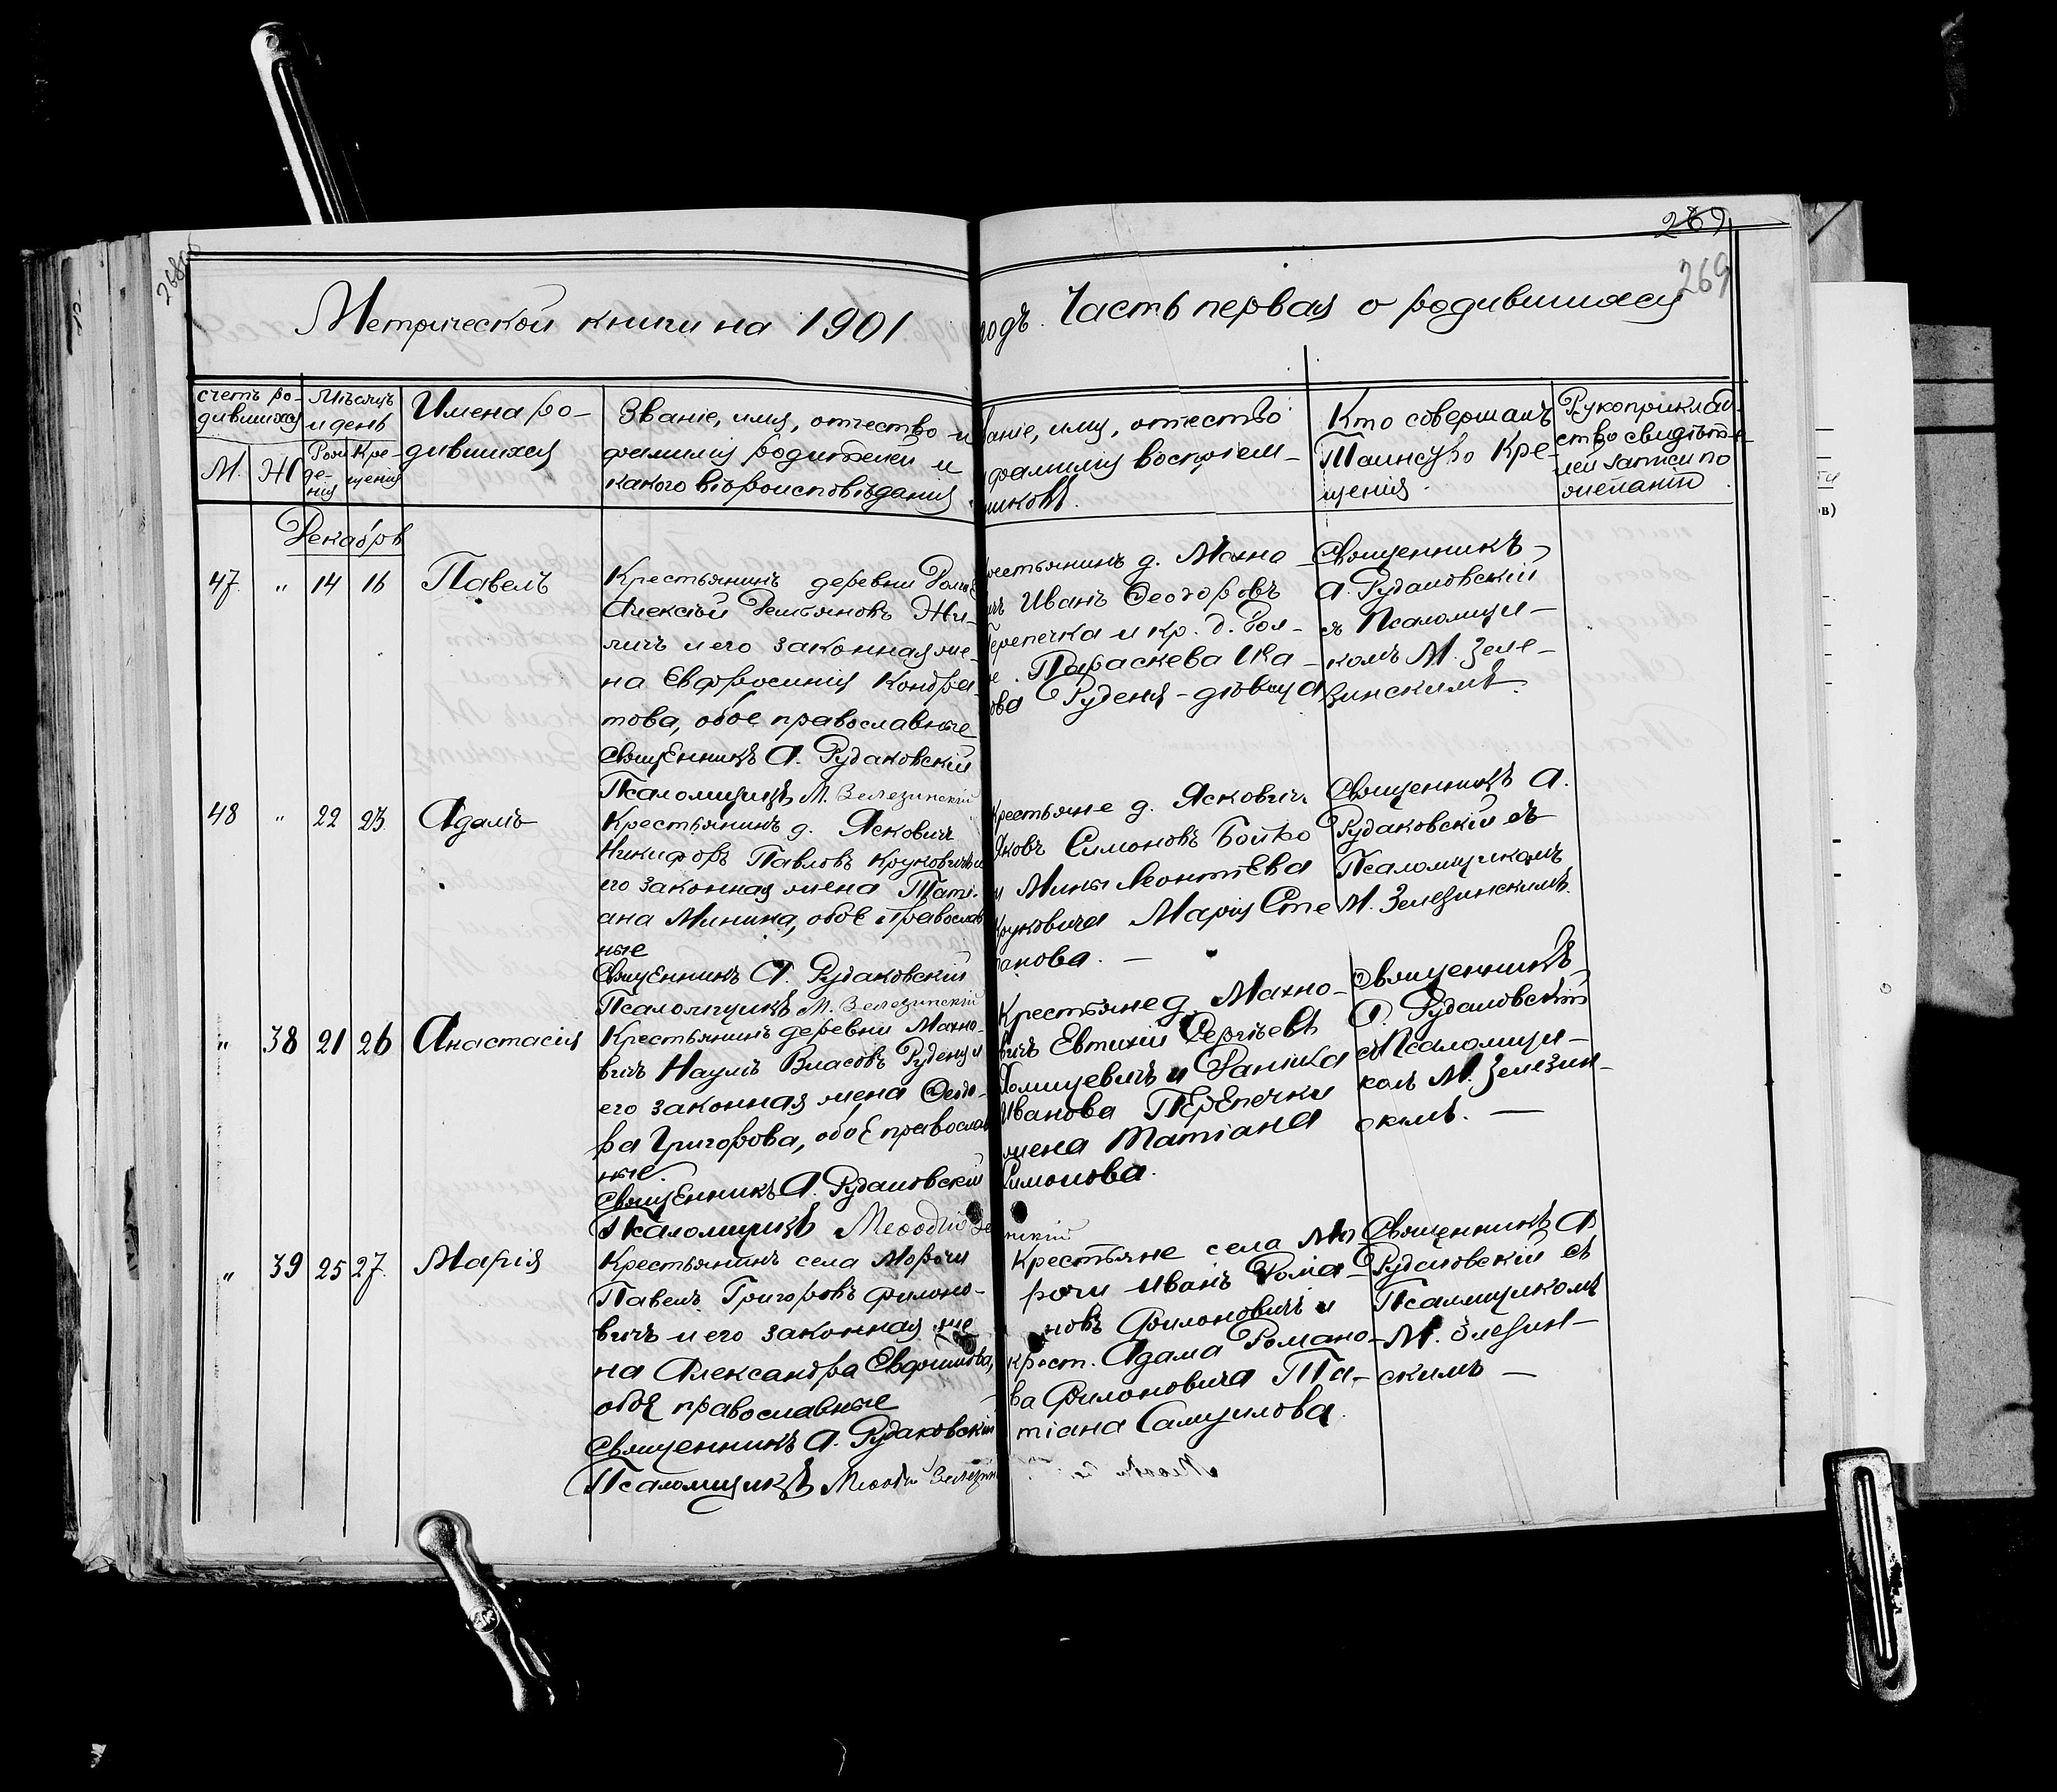 269
269
Метрической книги на 1901
годъ. Часть первая о родившихся
счетъ ро-
дившихся
М. Ж
Мѣсяцъ
и день
Рож
де-
нія
Кре-
щенія
Имена ро-
дившихся
Званіе, имя, отчество и
фамилія родителей и
какого вѣроисповѣданія
званіе, имя, отчество
фамилія воспріем-
никовъ.
Кто совершалъ
Таинство Кре-
щенія.
Рукоприклад-
ство свидѣте-
лей записи по
желанію
Декабрь
47 " 14 16 Павелъ
Крестьянинъ деревни
Алексѣй Демьяновъ Жи-
личъ и его законная же-
на Евфросинія Кондра-
това, обое православные
Священникъ А. Рудаковскій
Псаломщикъ М. Зелезинскій
Крестьянинъ д. Махно-
вичъ Иванъ Ѳеодоровъ
Перепечка и кр. д.
Параскева
Руденя - дѣвица
Священникъ
А. Рудаковскій
съ Псаломщи-
комъ М. Зеле-
зинскимъ.
48 " 22 23 Адамъ
Крестьянинъ д. Ясковичъ
Никифоръ Павловъ Круковичъ и
его законная жена Тати-
ана Минина, обое православ
ные
Священникъ А. Рудаковскій
Псаломщикъ М. Зелезинскій
Крестьяне д. Ясковичъ
Яковъ Симоновъ Бойко
и Мины Леонтѣева
Круковича Марія Сте
панова. —
Священникъ А.
Рудаковскій съ
Псаломщикомъ
М. Зелезинскимъ.
" 38 21 26 Анастасія
Крестьянинъ деревни Махно-
вичъ Наумъ Власовъ Руденя и
его законная жена Ѳеодо-
ра Григорова, обое православ
ные.
Священникъ А. Рудаковскій
Псаломщикъ Меѳодій Зелезинскій
Крестьяне д. Махно-
вичъ Евтихій Сергѣевъ
и
Иванова Перепечки
жена Татіана
Симонова.
Священникъ
А. Рудаковскій
съ Псаломщи-
комъ М. Зелезин-
скимъ. —
" 39 25 27. Марія
Крестьянинъ села Морочи
Павелъ Григоровъ Филоно-
вичъ и его законная же
на Александра Евфимова,
обое православные
Священникъ А. Рудаковскій
Псаломщикъ Меѳодій Зелезин
Крестьяне села Мо-
рочи Иванъ Рома-
новъ Филоновичъ и
крест. Адама Романо-
ва Филоновича Та-
тіана Самуилова.
Священникъ А
Рудаковскій съ
Псаломщикомъ
М. Злезин-
скимъ —